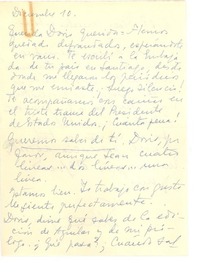 Diciembre 10.
Querida Doris querida: Hemos
quedado defraudados, esperándote
en vano. Te escribí a la Embajada
de tu país en Santiago, desde
donde me llegaron los periódicos
que me enviaste. ¡Luego silencio!
Te acompañamos con cariño en
el triste trance del Presidente
de Estados Unidos. ¡Cuánta pena!
Queremos saber de ti, Doris, por
favor, aunque sean cuatro
líneas... dos líneas... una
línea.
Estamos bien. Yo trabajo con gusto
y me siento perfectamente.
Doris, dime qué sabes de la edición
de Aguilar y de mi prólogo.
¿Qué pasa? ¿Cuándo sal